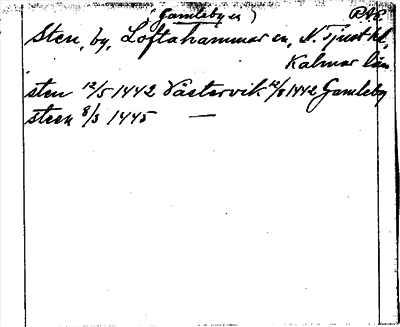 (Gamleby sn) P.A.8.
Sten, by, Loftahammar sn, N. Tjust hd,
Kalmar län
sten 12/5 1442 Västervik 12/8 1442 Gamleby
steen 8/3 1445 —